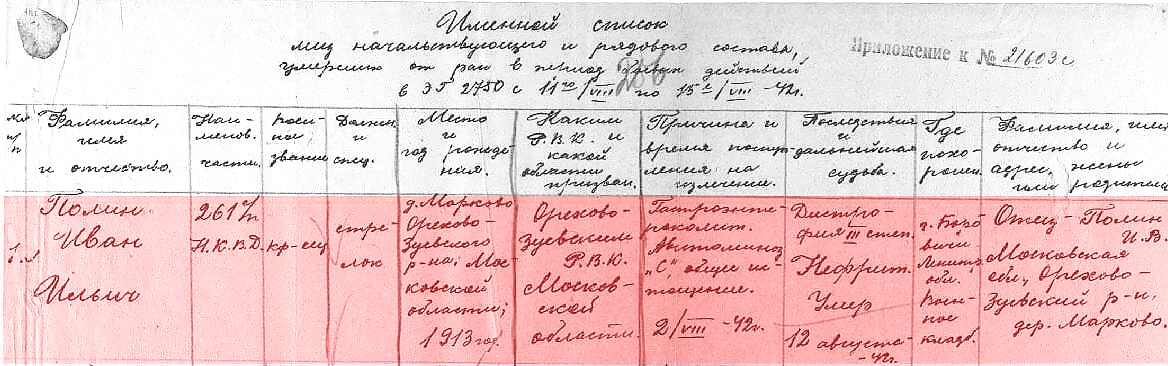 Именной список
лиц начальствующего и рядового состава,
умерших от ран в период боевых действий
в ЭГ 2750 с 11го/VIII по 15е/VIII -42г.
Приложение к № 21603с
№№ п/п
Фамилия, имя и отчество.
Наименов. части.
Воинское звание
Должн. и спец.
Место и год рождения.
Каким Р.В.К. и какой области призван.
Причина и время поступления на излечение.
Последствия и дальнейшая судьба.
Где похоронен.
Фамилия, имя отчество и адрес жены или родителей
1.
Полин Иван Ильич
261 п/п Н.К.В.Д.
кр-ец
стрелок
д. Марково Орехово-Зуевского р-на, Московской области; 1913 год.
Орехово-Зуевским Р.В.К. Московской области.
Гастроэнтероколит. Авитаминоз "С", общее истощение. 2/VIII -42г.
Дистрофия III степ. Нефрит. Умер 12 августа -42г.
г. Боровичи Ленингр. обл. Военное кладб.
Отец - Полин И.В. Московская обл., Орехово-Зуевский р-н. дер. Марково.